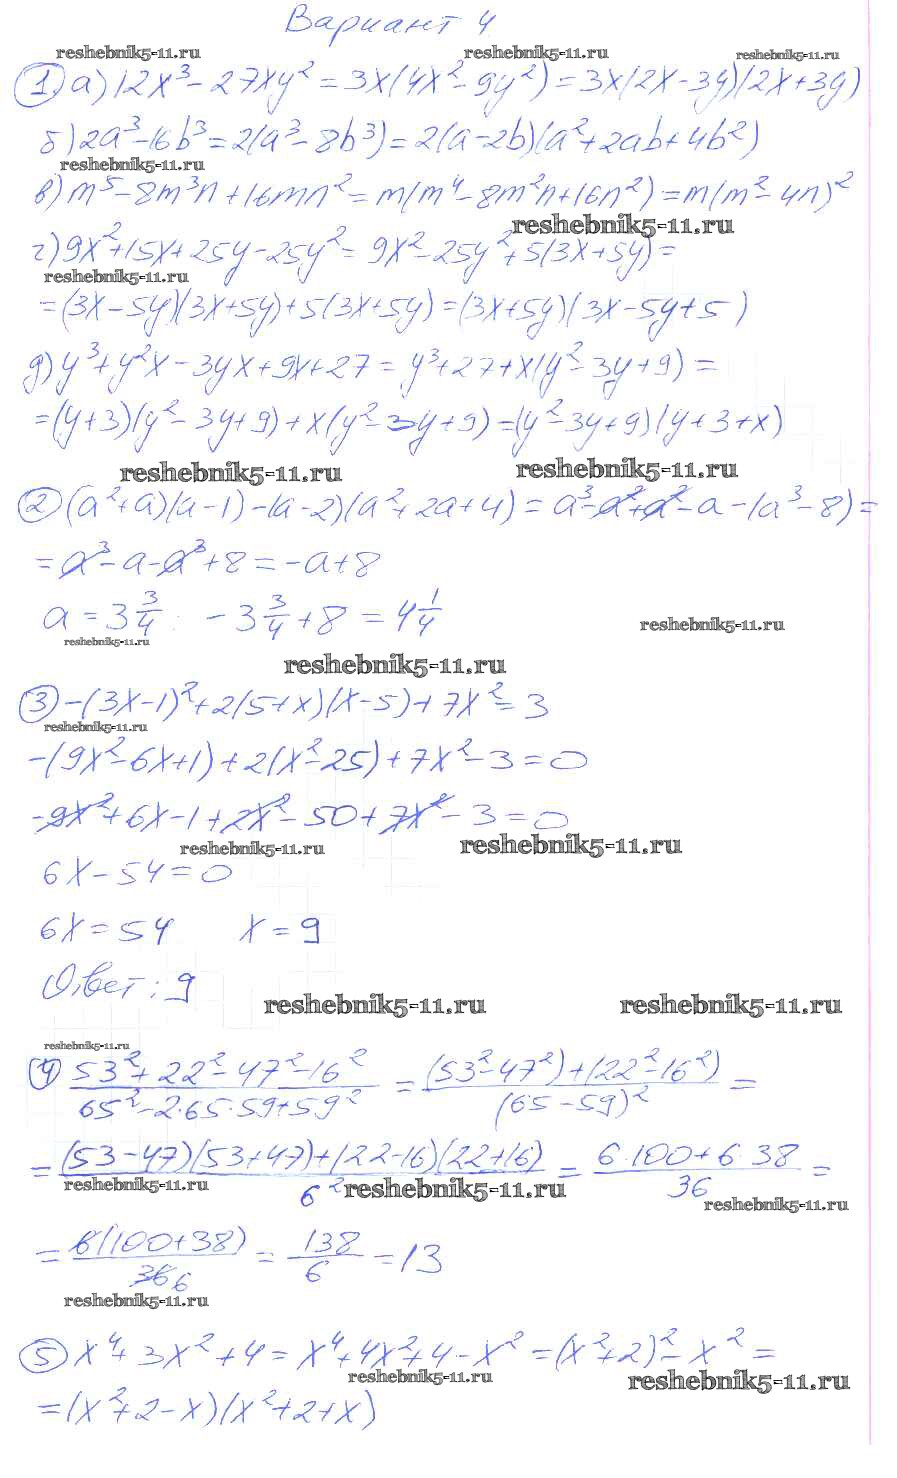 Вариант 4
reshebnik5-11.ru reshebnik5-11.ru reshebnik5-11.ru
1) а) 12x³ - 27xy² = 3x(4x² - 9y²) = 3x(2x - 3y)(2x + 3y)
б) 2a³ - 16b³ = 2(a³ - 8b³) = 2(a - 2b)(a² + 2ab + 4b²)
reshebnik5-11.ru
в) m⁵ - 8m³n + 16mn² = m(m⁴ - 8m²n + 16n²) = m(m² - 4n)²
reshebnik5-11.ru
г) 9x² + 15x + 25y - 25y² = 9x² - 25y² + 5(3x + 5y) =
reshebnik5-11.ru
= (3x - 5y)(3x + 5y) + 5(3x + 5y) = (3x + 5y)(3x - 5y + 5)
д) y³ + y²x - 3yx + 9x + 27 = y³ + 27 + x(y² - 3y + 9) =
= (y + 3)(y² - 3y + 9) + x(y² - 3y + 9) = (y² - 3y + 9)(y + 3 + x)
reshebnik5-11.ru reshebnik5-11.ru
2) (a² + a)(a - 1) - (a - 2)(a² + 2a + 4) = a³ - a² + a² - a - (a³ - 8) =
= a³ - a - a³ + 8 = -a + 8
a = 3 3/4 : - 3 3/4 + 8 = 4 1/4
reshebnik5-11.ru
reshebnik5-11.ru
reshebnik5-11.ru
3) -(3x - 1)² + 2(5 + x)(x - 5) + 7x² = 3
reshebnik5-11.ru
-(9x² - 6x + 1) + 2(x² - 25) + 7x² - 3 = 0
-9x² + 6x - 1 + 2x² - 50 + 7x² - 3 = 0
reshebnik5-11.ru reshebnik5-11.ru
6x - 54 = 0
6x = 54 x = 9
Ответ: 9
reshebnik5-11.ru reshebnik5-11.ru
reshebnik5-11.ru
4) (53² + 22² - 47² - 16²)/(65² - 2·65·59 + 59²) = ((53² - 47²) + (22² - 16²))/(65 - 59)² =
= ((53 - 47)(53 + 47) + (22 - 16)(22 + 16))/6² = (6·100 + 6·38)/36 =
reshebnik5-11.ru reshebnik5-11.ru reshebnik5-11.ru
= 6(100 + 38)/36 6 = 138/6 = 13
reshebnik5-11.ru
5) x⁴ + 3x² + 4 = x⁴ + 4x² + 4 - x² = (x² + 2)² - x² =
reshebnik5-11.ru reshebnik5-11.ru
= (x² + 2 - x)(x² + 2 + x)